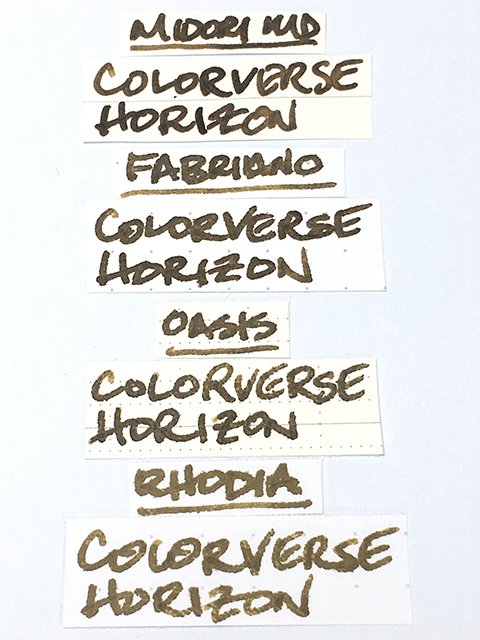 MIDORI MD
COLORVERSE
HORIZON
FABRIANO
COLORVERSE
HORIZON
OASIS
COLORVERSE
HORIZON
RHODIA
COLORVERSE
HORIZON